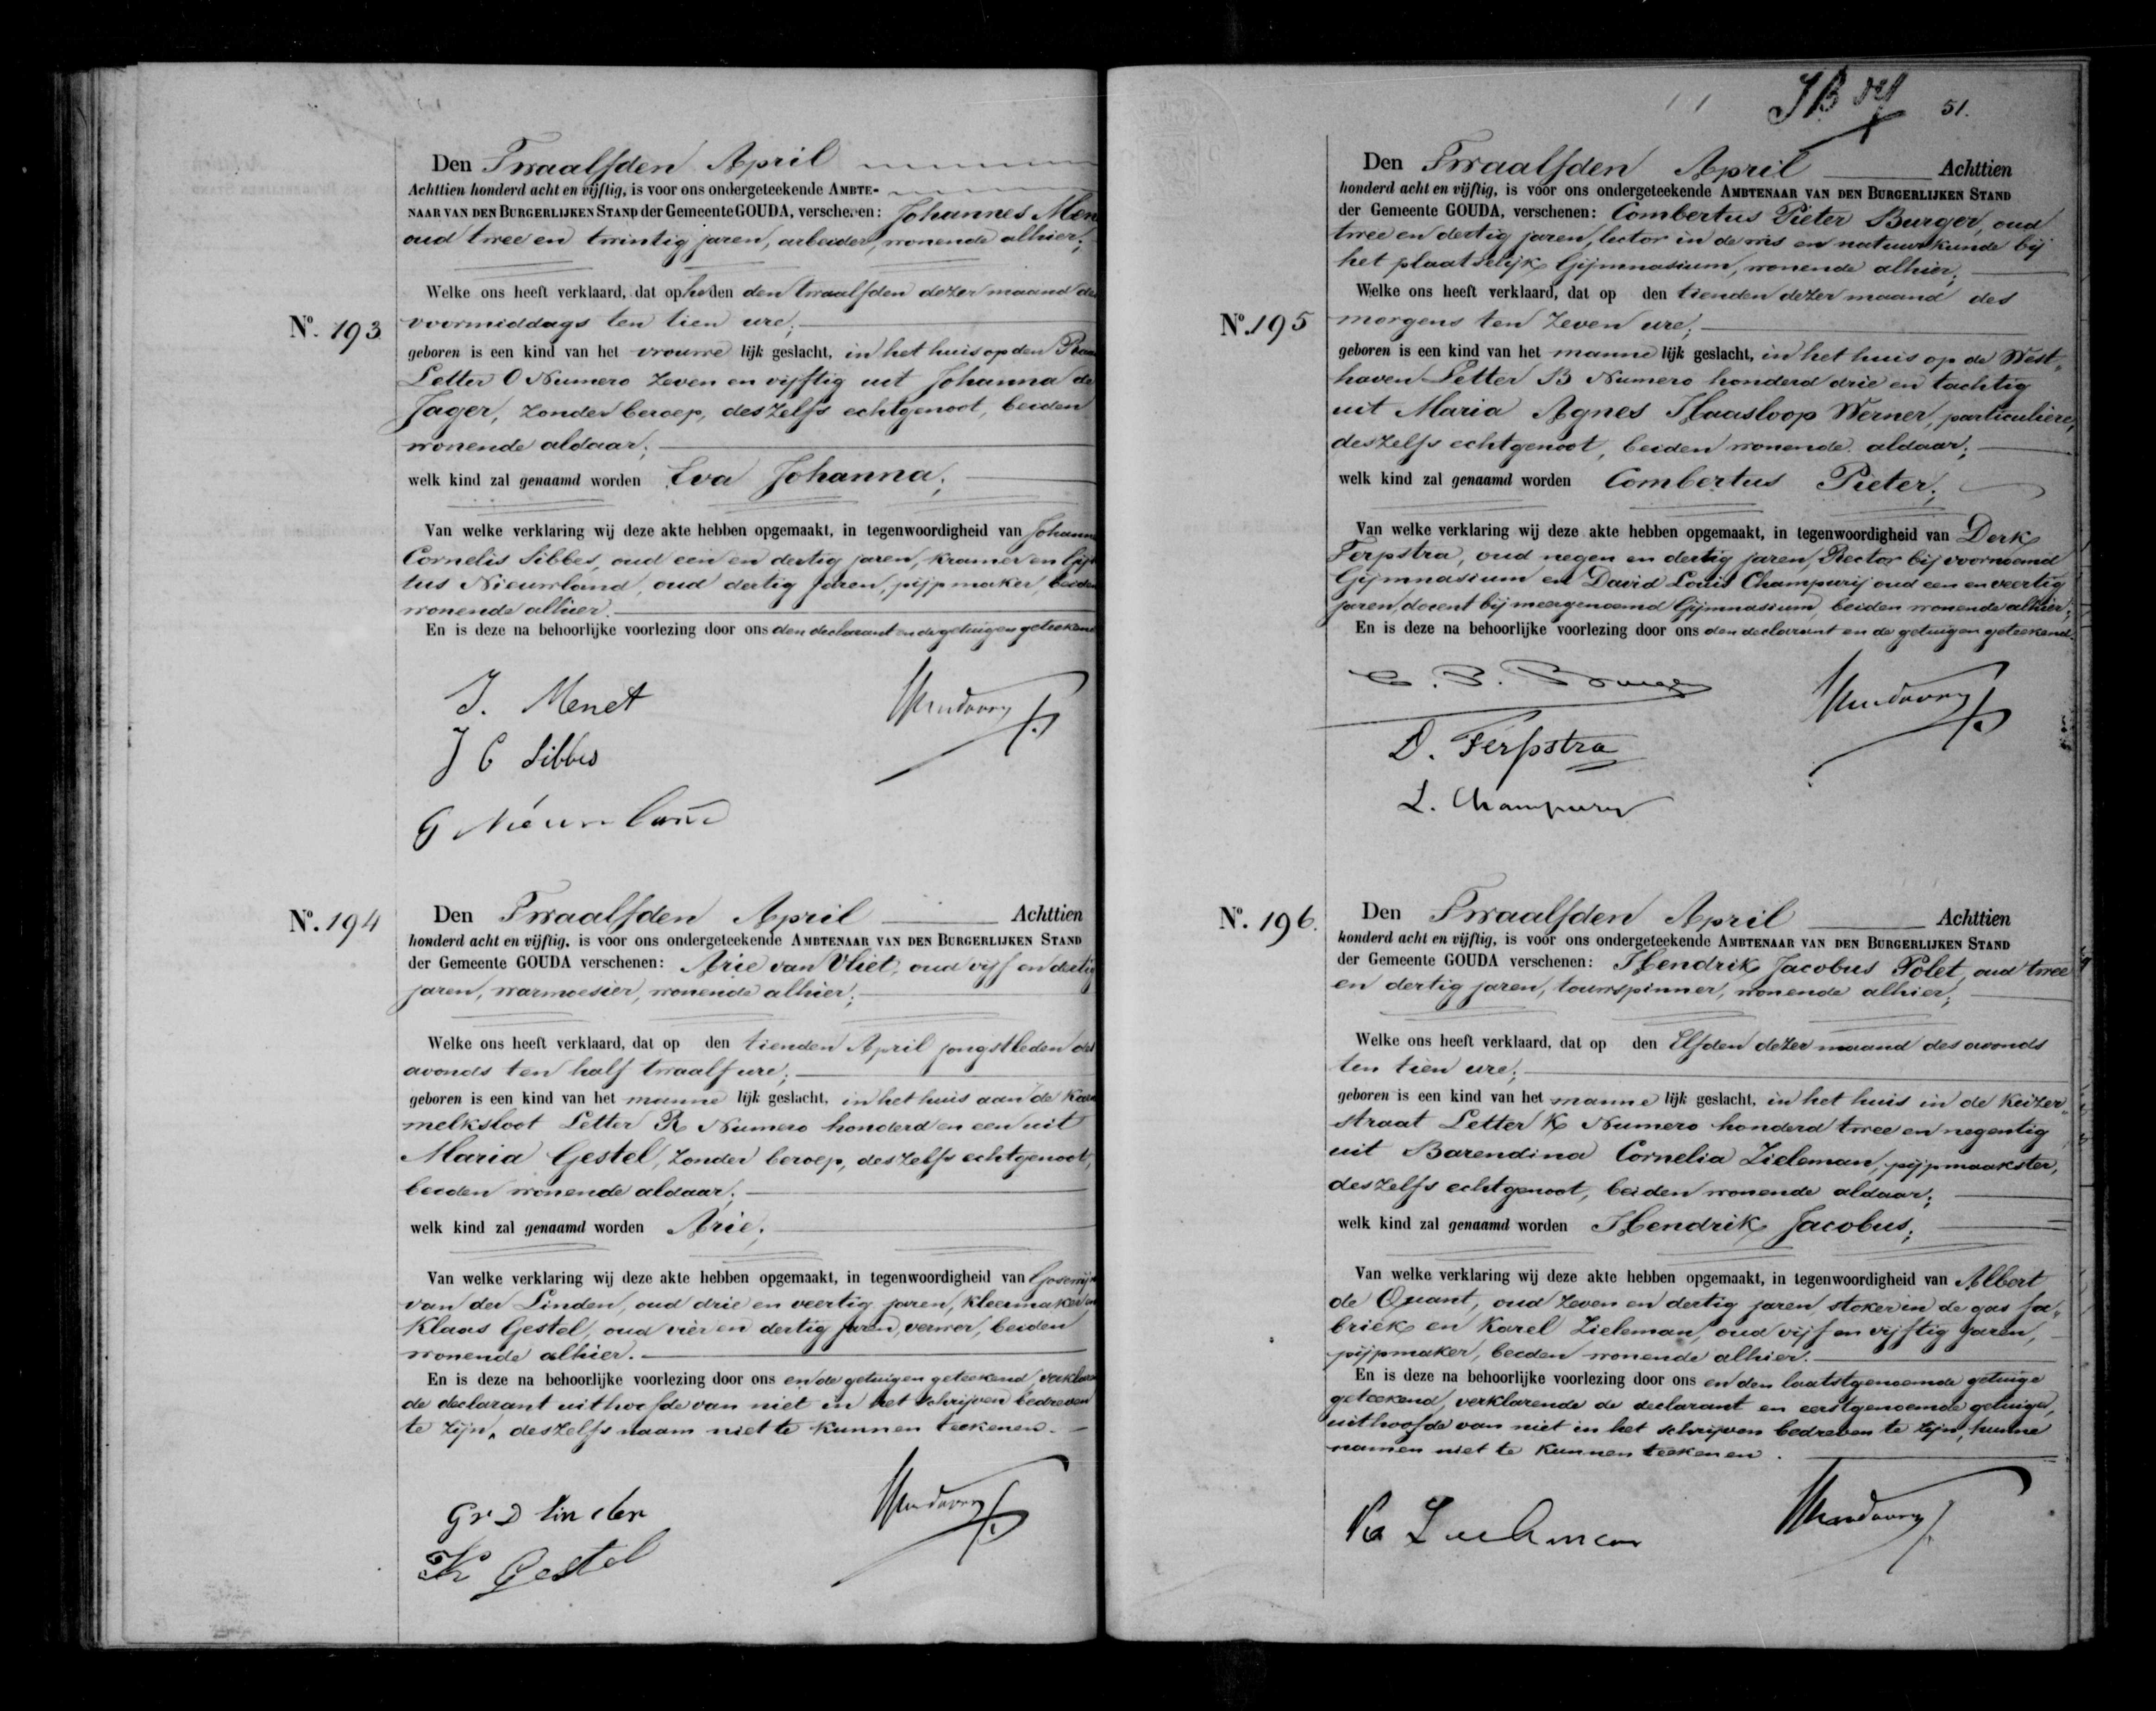 Den Twaalfden April
Achttien honderd acht en vijftig, is voor ons ondergeteekende AMBTE-
NAAR VAN DEN BURGERLIJKEN STAND der Gemeente GOUDA, verschenen: Johannes Men
oud twee en twintig jaren, arbeider, wonende alhier;
Welke ons heeft verklaard, dat op heden den twaalfden dezer maand des
No. 193 voormiddags ten tien ure;
geboren is een kind van het vrouwe lijk geslacht, in het huis op den Raam
Letter O Numero zeven en vijftig uit Johanna de
Jager, zonder beroep, deszelfs echtgenoot, beiden
wonende aldaar;
welk kind zal genaamd worden Eva Johanna;
Van welke verklaring wij deze akte hebben opgemaakt, in tegenwoordigheid van Johann
Cornelis Sibbes, oud een en dertig jaren, kramer en Gijs
tus Nieuwland, oud dertig jaren, pijpmaker, beiden
wonende alhier.
En is deze na behoorlijke voorlezing door ons den declarant en de getuigen geteekend
J. Menet
J C Sibbes
G Nieuwland
No. 194 Den Twaalfden April Achttien
honderd acht en vijftig, is voor ons ondergeteekende AMBTENAAR VAN DEN BURGERLIJKEN STAND
der Gemeente GOUDA verschenen: Arie van Vliet, oud vijf en dertig
jaren, warmoesier, wonende alhier;
Welke ons heeft verklaard, dat op den tienden April jongstleden des
avonds ten half twaalf ure;
geboren is een kind van het manne lijk geslacht, in het huis aan de Karn
melksloot Letter R Numero honderd en een uit
Maria Gestel, zonder beroep, deszelfs echtgenoot,
beiden wonende aldaar;
welk kind zal genaamd worden Arie;
Van welke verklaring wij deze akte hebben opgemaakt, in tegenwoordigheid van Goswijn
van der Linden, oud drie en veertig jaren, kleermaker en
Klaas Gestel, oud vier en dertig jaren, verwer, beiden
wonende alhier.
En is deze na behoorlijke voorlezing door ons en de getuigen geteekend, verklaren
de declarant uithoofde van niet in het schrijven bedreven
te zijn, deszelfs naam niet te kunnen teekenen.
G v D Linden
K Gestel
51.
Den Twaalfden April Achttien
honderd acht en vijftig, is voor ons ondergeteekende AMBTENAAR VAN DEN BURGERLIJKEN STAND
der Gemeente GOUDA, verschenen: Combertus Pieter Burger, oud
twee en dertig jaren, lector in de wis en natuurkunde bij
het plaatselijk Gijmnasium, wonende alhier;
Welke ons heeft verklaard, dat op den tienden dezer maand des
No. 195 morgens ten zeven ure;
geboren is een kind van het manne lijk geslacht, in het huis op de West-
haven Letter B Numero honderd drie en tachtig
uit Maria Agnes Haasloop Werner, particuliere,
deszelfs echtgenoot, beiden wonende aldaar;
welk kind zal genaamd worden Combertus Pieter;
Van welke verklaring wij deze akte hebben opgemaakt, in tegenwoordigheid van Derk
Terpstra, oud negen en dertig jaren, Rector bij voornoemd
Gijmnasium en David Louis Champurij oud een en veertig
jaren, docent bij meergenoemd Gijmnasium, beiden wonende alhier;
En is deze na behoorlijke voorlezing door ons den declarant en de getuigen geteekend.
C. P. Burger
D. Terpstra
L. Champury
No. 196. Den Twaalfden April Achttien
honderd acht en vijftig, is voor ons ondergeteekende AMBTENAAR VAN DEN BURGERLIJKEN STAND
der Gemeente GOUDA verschenen: Hendrik Jacobus Polet, oud twee
en dertig jaren, touwspinner, wonende alhier;
Welke ons heeft verklaard, dat op den Elfden dezer maand des avonds
ten tien ure;
geboren is een kind van het manne lijk geslacht, in het huis in de Keizer-
straat Letter K Numero honderd twee en negentig
uit Barendina Cornelia Zieleman, pijpmaakster,
deszelfs echtgenoot, beiden wonende aldaar;
welk kind zal genaamd worden Hendrik Jacobus;
Van welke verklaring wij deze akte hebben opgemaakt, in tegenwoordigheid van Albert
de Quant, oud zeven en dertig jaren, stoker in de gas fa-
briek en Karel Zieleman, oud vijf en vijftig jaren,
pijpmaker, beiden wonende alhier.
En is deze na behoorlijke voorlezing door ons en den laatstgenoemde getuige
geteekend, verklarende de declarant en eerstgenoemde getuige,
uithoofde van niet in het schrijven bedreven te zijn, hunne
namen niet te kunnen teekenen.